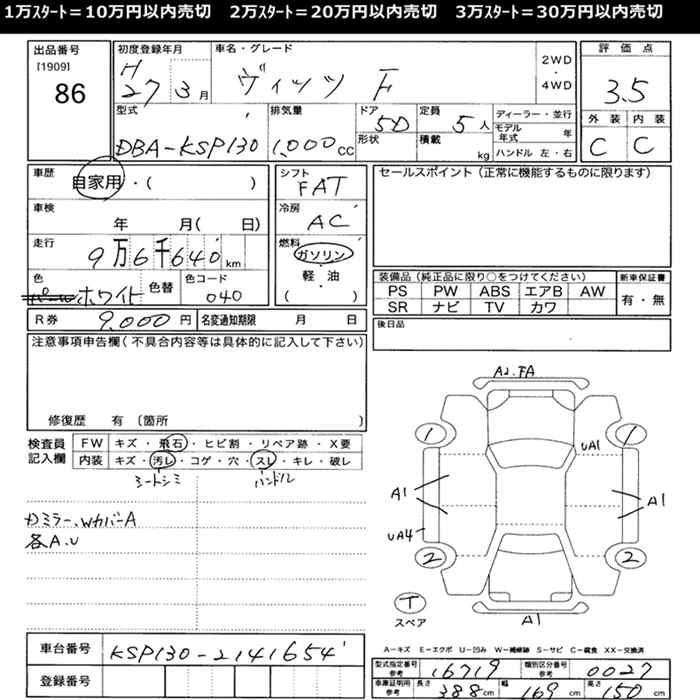 1万スタート=10万円以内売切 2万スタート=20万円以内売切 3万スタート=30万円以内売切
出品番号
[1909]
86
初度登録年月
H
27 3月
車名・グレード
ヴィッツ F
2WD
・
4WD
評価点
3.5
型式
DBA-KSP130
排気量
1,000cc
ドア
5D
形状
定員
5人
積載
kg
ディーラー・並行
モデル年式 年
ハンドル 左・右
外装 内装
C C
車歴
自家用・( )
車検
年 月( 日)
走行
9万6千640km
色
ホワイト
色替
色コード
040
シフト
FAT
冷房
AC
燃料
ガソリン
・
軽・油
( )
セールスポイント(正常に機能するものに限ります)
装備品(純正品に限り○をつけてください)
PS PW ABS エアB AW
SR ナビ TV カワ
新車保証書
有・無
後日品
R券 9,000円 名変通知期限 月 日
注意事項申告欄(不具合内容等は具体的に記入して下さい)
修復歴 有〔箇所
検査員記入欄
FW キズ・飛石・ヒビ割・リペア跡・X要
内装 キズ・汚レ・コゲ・穴・スレ・キレ・破レ
シートシミ ハンドル
Dミラー、WカバーA
各A.U
A2.FA
1 1
UA1
A1 A1
UA4
2 2
T
スペア
A1
A-キズ E-エクボ U-凹み W-補修跡 S-サビ C-腐食 XX-交換済
車台番号 KSP130-2141654
登録番号
型式指定番号参考 16719 類別区分番号参考 0027
車庫証明用参考 長さ 388cm 幅 169cm 高さ 150cm